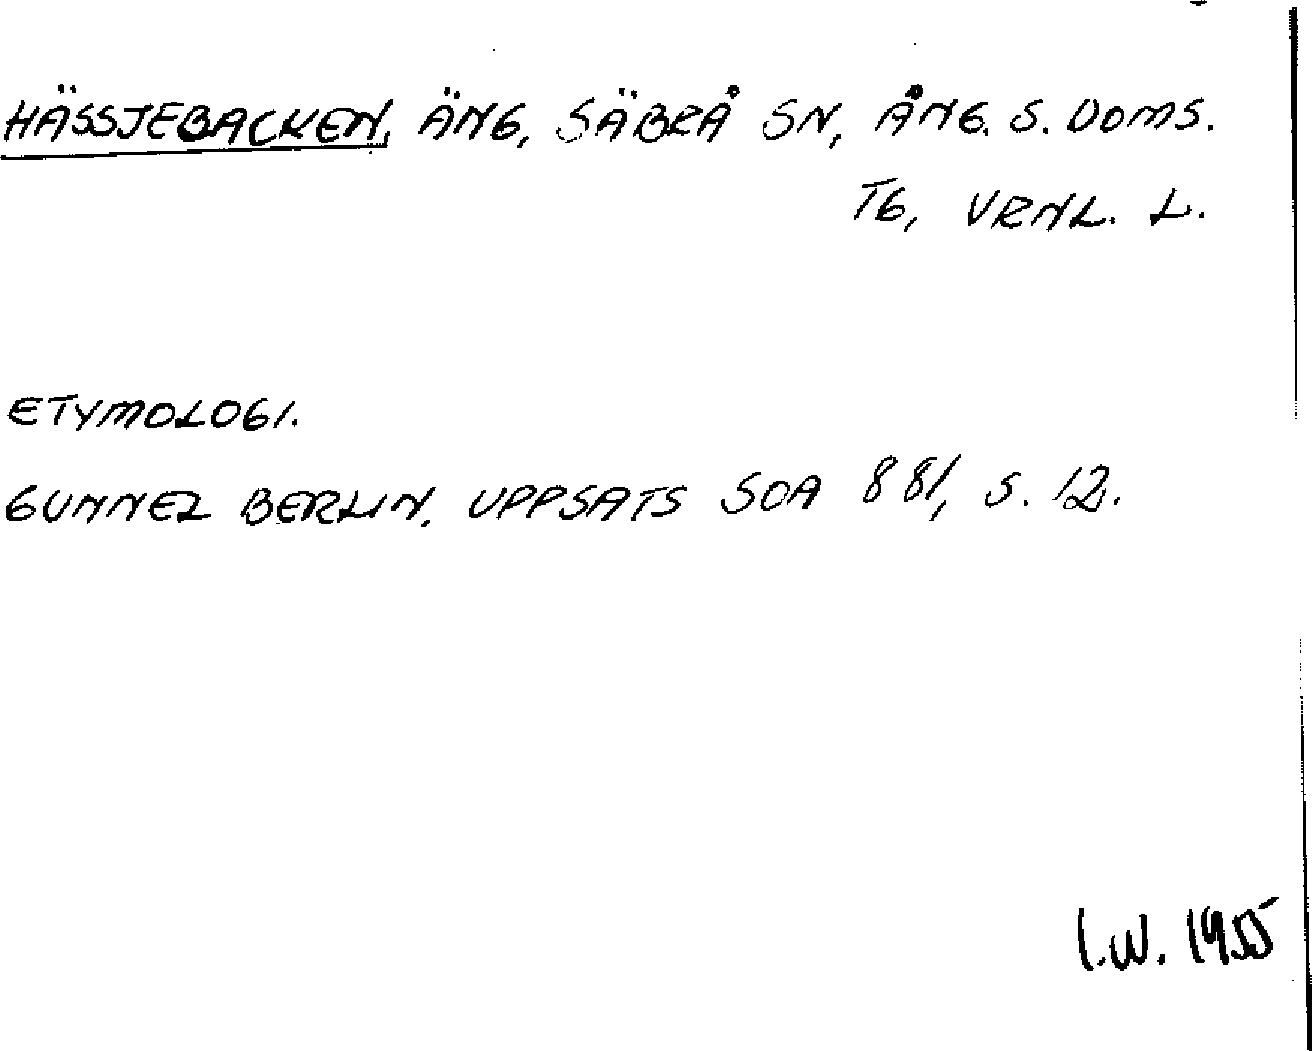 HÄSSJEBACKEN, ÄNG, SÄBRÅ SN, ÅNG. S. DOMS.
TG, VRNL. L.
ETYMOLOGI.
GUNNEL BERLIN, UPPSATS SOA 881, S. 12.
I.W. 1955